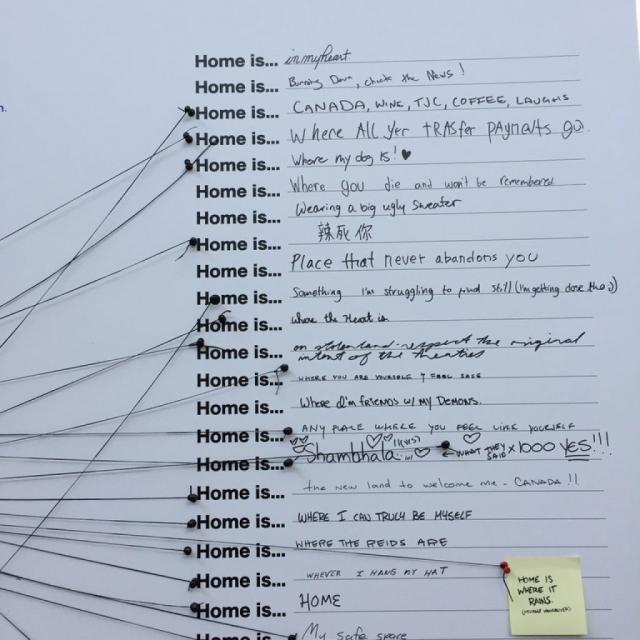 n.
Home is... in my heart.
Home is... Burning Down, check the News!
Home is... CANADA, WINE, TJC, COFFEE, LAUGHS
Home is... Where All yer tRAsfer pAymeNts go.
Home is... Where my dog is! ♥
Home is... Where you die and won't be remembered
Home is... Wearing a big ugly sweater
Home is... 辣死你
Home is... Place that never abandons you
Home is... Something I'm struggling to find still (I'm getting close tho :)
Home is... where the Heart is
Home is... on stolen land. respect the original
intent of the treaties
Home is... WHERE YOU ARE YOURSELF & FEEL SAFE
Home is... Where I'm FRIENDS w/ MY DEMONS.
Home is... ANY PLACE WHERE YOU FEEL LIKE YOURSELF
Home is... Shambhala ← WHAT THEY SAID x 1000 YES!!!
Home is... the new land to welcome me - CANADA!!
Home is... WHERE I CAN TRULY BE MYSELF
Home is... WHERE THE REIDS ARE
Home is... WHEVER I HANG MY HAT
Home is... HOME
Home is... My safe space
HOME IS
WHERE IT
RAINS.